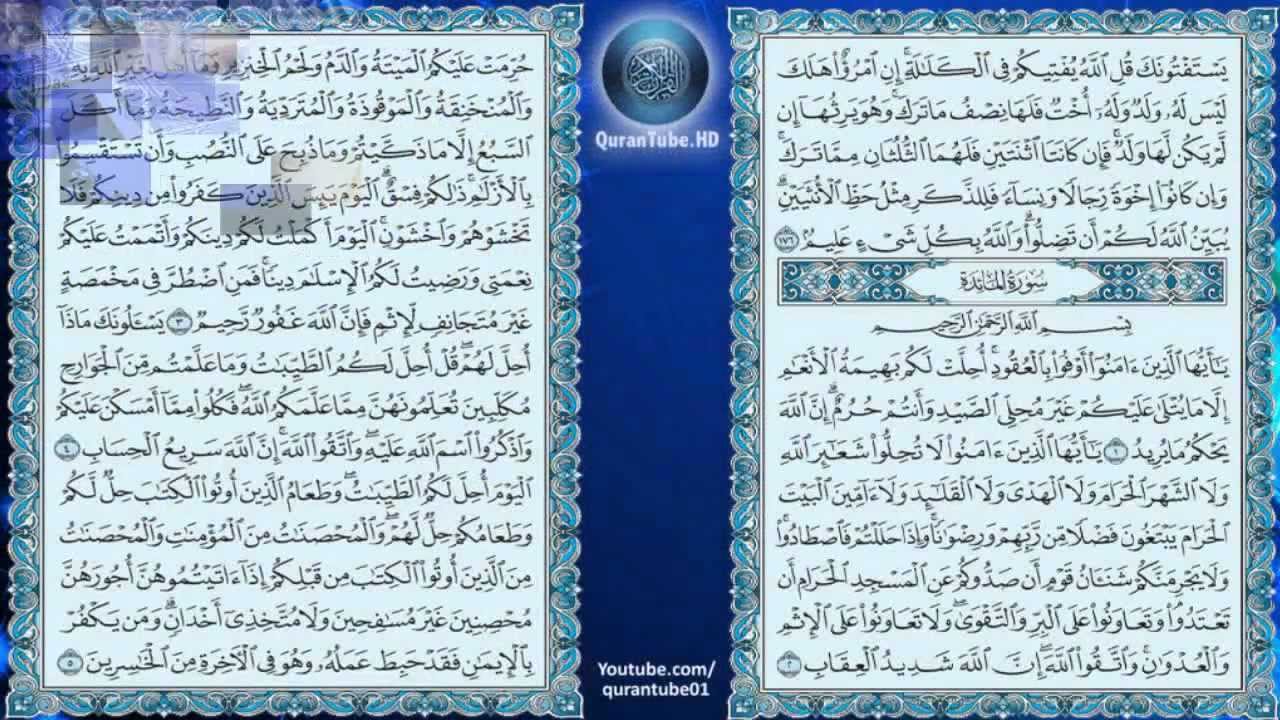 يَسْتَفْتُونَكَ قُلِ ٱللَّهُ يُفْتِيكُمْ فِى ٱلْكَلَـٰلَةِ ۚ إِنِ ٱمْرُؤٌا۟ هَلَكَ
لَيْسَ لَهُۥ وَلَدٌ وَلَهُۥٓ أُخْتٌ فَلَهَا نِصْفُ مَا تَرَكَ ۚ وَهُوَ يَرِثُهَآ إِن
لَّمْ يَكُن لَّهَا وَلَدٌ ۚ فَإِن كَانَتَا ٱثْنَتَيْنِ فَلَهُمَا ٱلثُّلُثَانِ مِمَّا تَرَكَ ۚ
وَإِن كَانُوٓا۟ إِخْوَةً رِّجَالًا وَنِسَآءً فَلِلذَّكَرِ مِثْلُ حَظِّ ٱلْأُنثَيَيْنِ ۗ
يُبَيِّنُ ٱللَّهُ لَكُمْ أَن تَضِلُّوا۟ ۗ وَٱللَّهُ بِكُلِّ شَىْءٍ عَلِيمٌۢ ١٧٦
سُورَةُ المَائِدَةِ
بِسْمِ ٱللَّهِ ٱلرَّحْمَـٰنِ ٱلرَّحِيمِ
يَـٰٓأَيُّهَا ٱلَّذِينَ ءَامَنُوٓا۟ أَوْفُوا۟ بِٱلْعُقُودِ ۚ أُحِلَّتْ لَكُم بَهِيمَةُ ٱلْأَنْعَـٰمِ
إِلَّا مَا يُتْلَىٰ عَلَيْكُمْ غَيْرَ مُحِلِّى ٱلصَّيْدِ وَأَنتُمْ حُرُمٌ ۗ إِنَّ ٱللَّهَ
يَحْكُمُ مَا يُرِيدُ ١ يَـٰٓأَيُّهَا ٱلَّذِينَ ءَامَنُوا۟ لَا تُحِلُّوا۟ شَعَـٰٓئِرَ ٱللَّهِ
وَلَا ٱلشَّهْرَ ٱلْحَرَامَ وَلَا ٱلْهَدْىَ وَلَا ٱلْقَلَـٰٓئِدَ وَلَآ ءَآمِّينَ ٱلْبَيْتَ
ٱلْحَرَامَ يَبْتَغُونَ فَضْلًا مِّن رَّبِّهِمْ وَرِضْوَٰنًا ۚ وَإِذَا حَلَلْتُمْ فَٱصْطَادُوا۟ ۚ
وَلَا يَجْرِمَنَّكُمْ شَنَـَٔانُ قَوْمٍ أَن صَدُّوكُمْ عَنِ ٱلْمَسْجِدِ ٱلْحَرَامِ أَن
تَعْتَدُوا۟ ۘ وَتَعَاوَنُوا۟ عَلَى ٱلْبِرِّ وَٱلتَّقْوَىٰ ۖ وَلَا تَعَاوَنُوا۟ عَلَى ٱلْإِثْمِ
وَٱلْعُدْوَٰنِ ۚ وَٱتَّقُوا۟ ٱللَّهَ ۖ إِنَّ ٱللَّهَ شَدِيدُ ٱلْعِقَابِ ٢
QuranTube.HD
Youtube.com/
qurantube01
حُرِّمَتْ عَلَيْكُمُ ٱلْمَيْتَةُ وَٱلدَّمُ وَلَحْمُ ٱلْخِنزِيرِ وَمَآ أُهِلَّ لِغَيْرِ ٱللَّهِ بِهِۦ
وَٱلْمُنْخَنِقَةُ وَٱلْمَوْقُوذَةُ وَٱلْمُتَرَدِّيَةُ وَٱلنَّطِيحَةُ وَمَآ أَكَلَ
ٱلسَّبُعُ إِلَّا مَا ذَكَّيْتُمْ وَمَا ذُبِحَ عَلَى ٱلنُّصُبِ وَأَن تَسْتَقْسِمُوا۟
بِٱلْأَزْلَـٰمِ ۚ ذَٰلِكُمْ فِسْقٌ ۗ ٱلْيَوْمَ يَئِسَ ٱلَّذِينَ كَفَرُوا۟ مِن دِينِكُمْ فَلَا
تَخْشَوْهُمْ وَٱخْشَوْنِ ۚ ٱلْيَوْمَ أَكْمَلْتُ لَكُمْ دِينَكُمْ وَأَتْمَمْتُ عَلَيْكُمْ
نِعْمَتِى وَرَضِيتُ لَكُمُ ٱلْإِسْلَـٰمَ دِينًا ۚ فَمَنِ ٱضْطُرَّ فِى مَخْمَصَةٍ
غَيْرَ مُتَجَانِفٍ لِّإِثْمٍ ۙ فَإِنَّ ٱللَّهَ غَفُورٌ رَّحِيمٌ ٣ يَسْـَٔلُونَكَ مَاذَآ
أُحِلَّ لَهُمْ ۖ قُلْ أُحِلَّ لَكُمُ ٱلطَّيِّبَـٰتُ ۙ وَمَا عَلَّمْتُم مِّنَ ٱلْجَوَارِحِ
مُكَلِّبِينَ تُعَلِّمُونَهُنَّ مِمَّا عَلَّمَكُمُ ٱللَّهُ ۖ فَكُلُوا۟ مِمَّآ أَمْسَكْنَ عَلَيْكُمْ
وَٱذْكُرُوا۟ ٱسْمَ ٱللَّهِ عَلَيْهِ ۖ وَٱتَّقُوا۟ ٱللَّهَ ۚ إِنَّ ٱللَّهَ سَرِيعُ ٱلْحِسَابِ ٤
ٱلْيَوْمَ أُحِلَّ لَكُمُ ٱلطَّيِّبَـٰتُ ۖ وَطَعَامُ ٱلَّذِينَ أُوتُوا۟ ٱلْكِتَـٰبَ حِلٌّ لَّكُمْ
وَطَعَامُكُمْ حِلٌّ لَّهُمْ ۖ وَٱلْمُحْصَنَـٰتُ مِنَ ٱلْمُؤْمِنَـٰتِ وَٱلْمُحْصَنَـٰتُ
مِنَ ٱلَّذِينَ أُوتُوا۟ ٱلْكِتَـٰبَ مِن قَبْلِكُمْ إِذَآ ءَاتَيْتُمُوهُنَّ أُجُورَهُنَّ
مُحْصِنِينَ غَيْرَ مُسَـٰفِحِينَ وَلَا مُتَّخِذِىٓ أَخْدَانٍ ۗ وَمَن يَكْفُرْ
بِٱلْإِيمَـٰنِ فَقَدْ حَبِطَ عَمَلُهُۥ وَهُوَ فِى ٱلْـَٔاخِرَةِ مِنَ ٱلْخَـٰسِرِينَ ٥